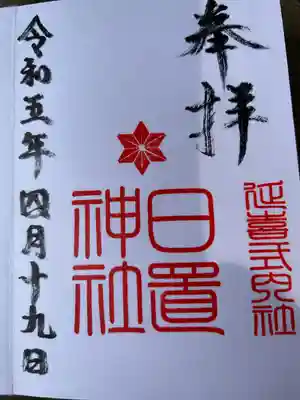 奉拝
延喜式内社
日置
神社
令和五年 四月十九日